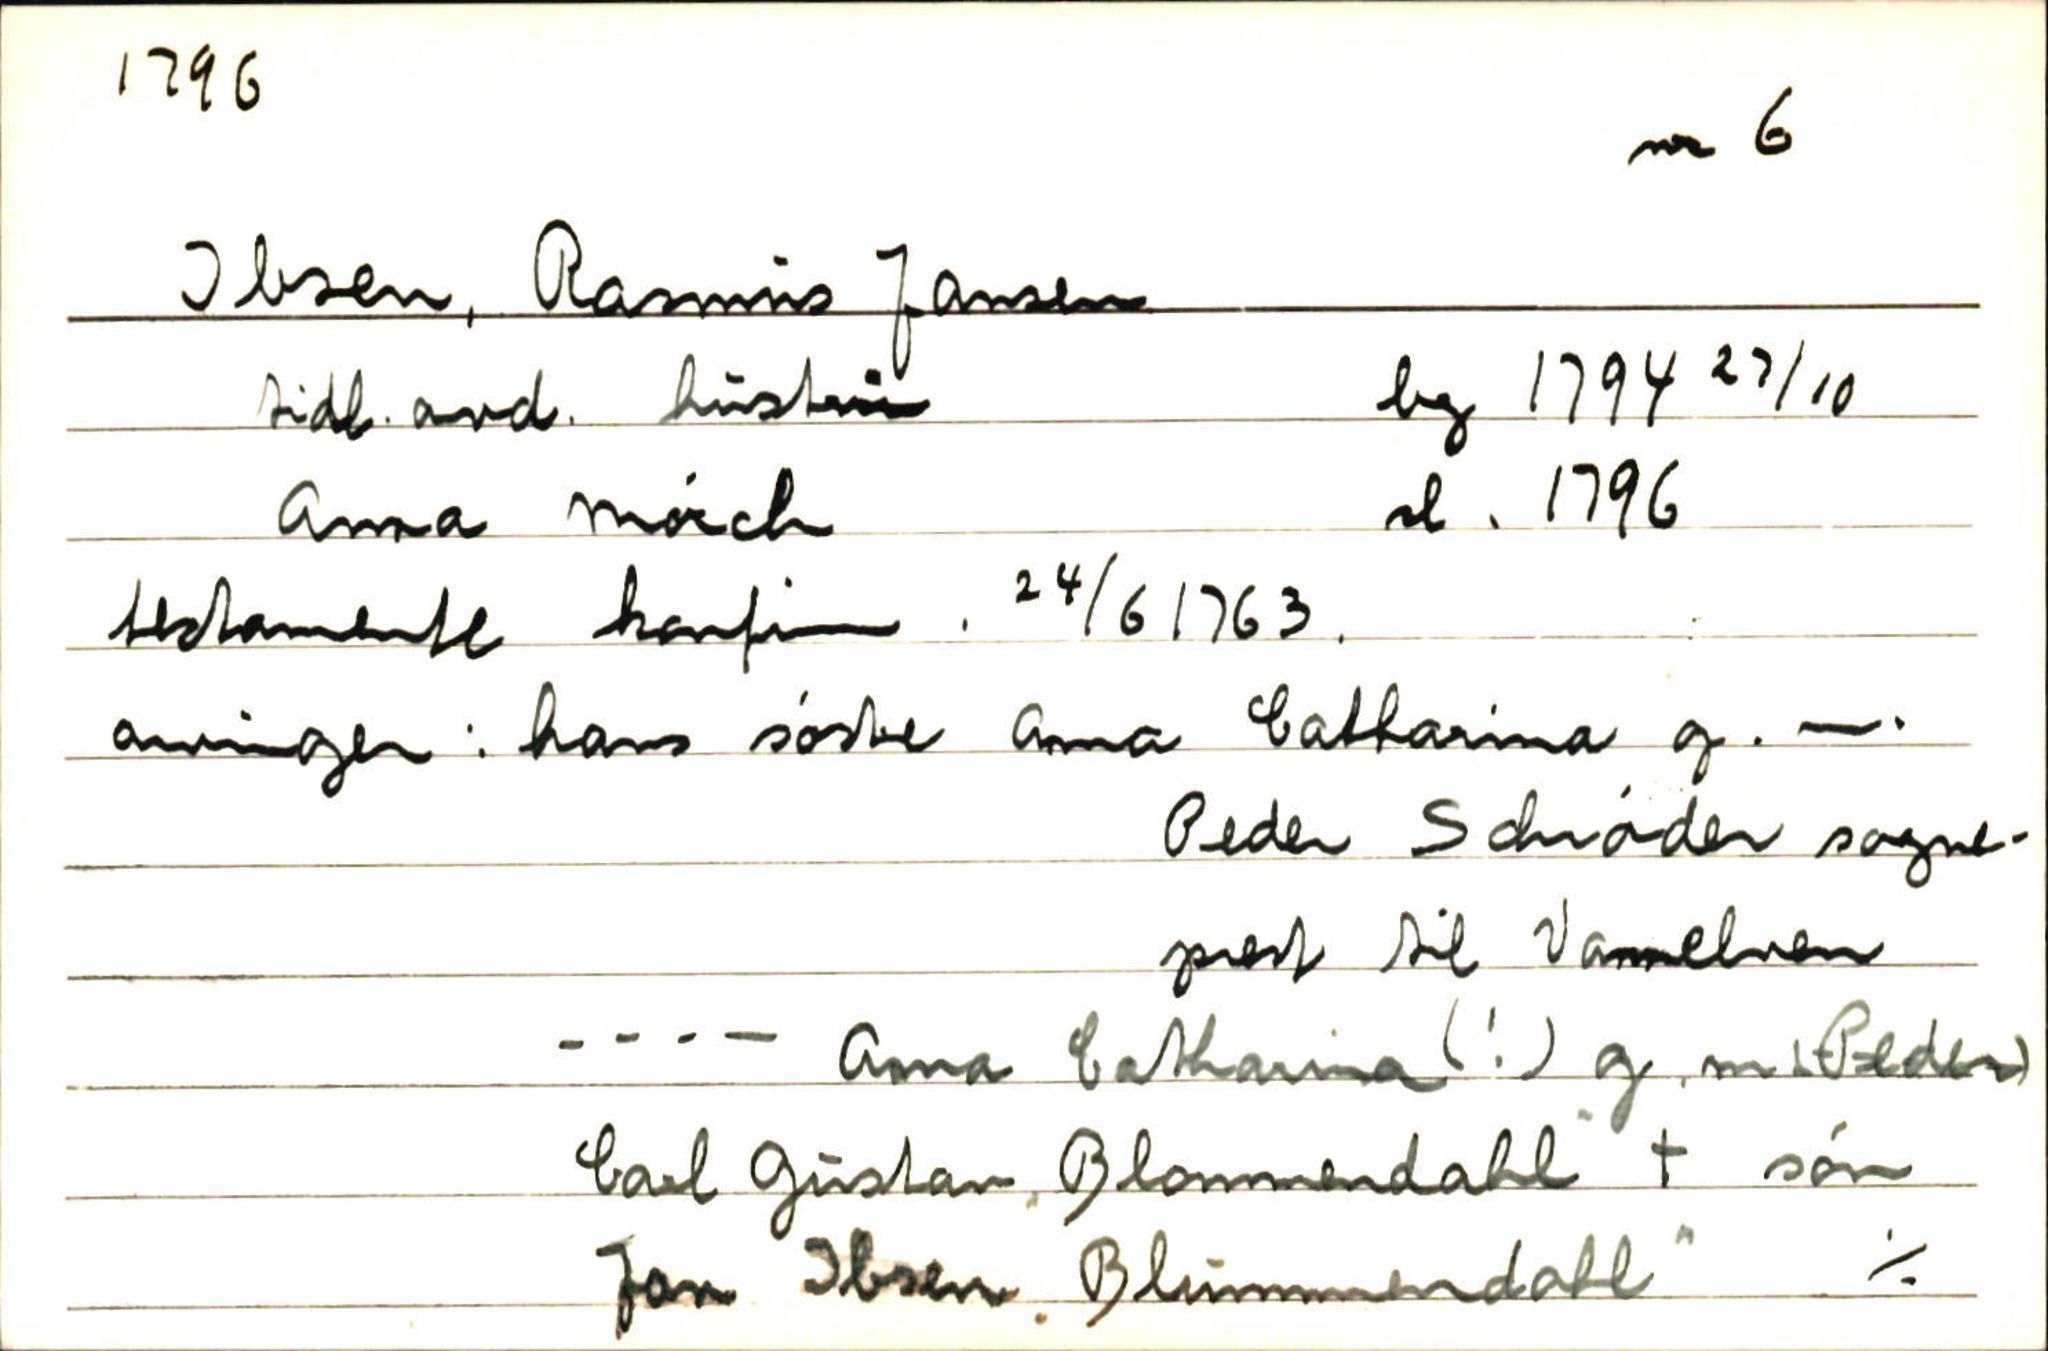 1796
nr 6
Ibsen, Rasmus Jansen
tidl. avd. hustru bg 1794 27/10
Anna Mørch sl. 1796
testamente konfirm. 24/6 1763.
arvinger: hans søster Anna Catharina g. —.
Peder Schrøder sogne-
prest til Vannelven
- - - — Anna Catharina (!) g. m. (Peder)
Carl Gustav "Blommendahl" † søn
Jan Ibsen "Blummendahl" ./.